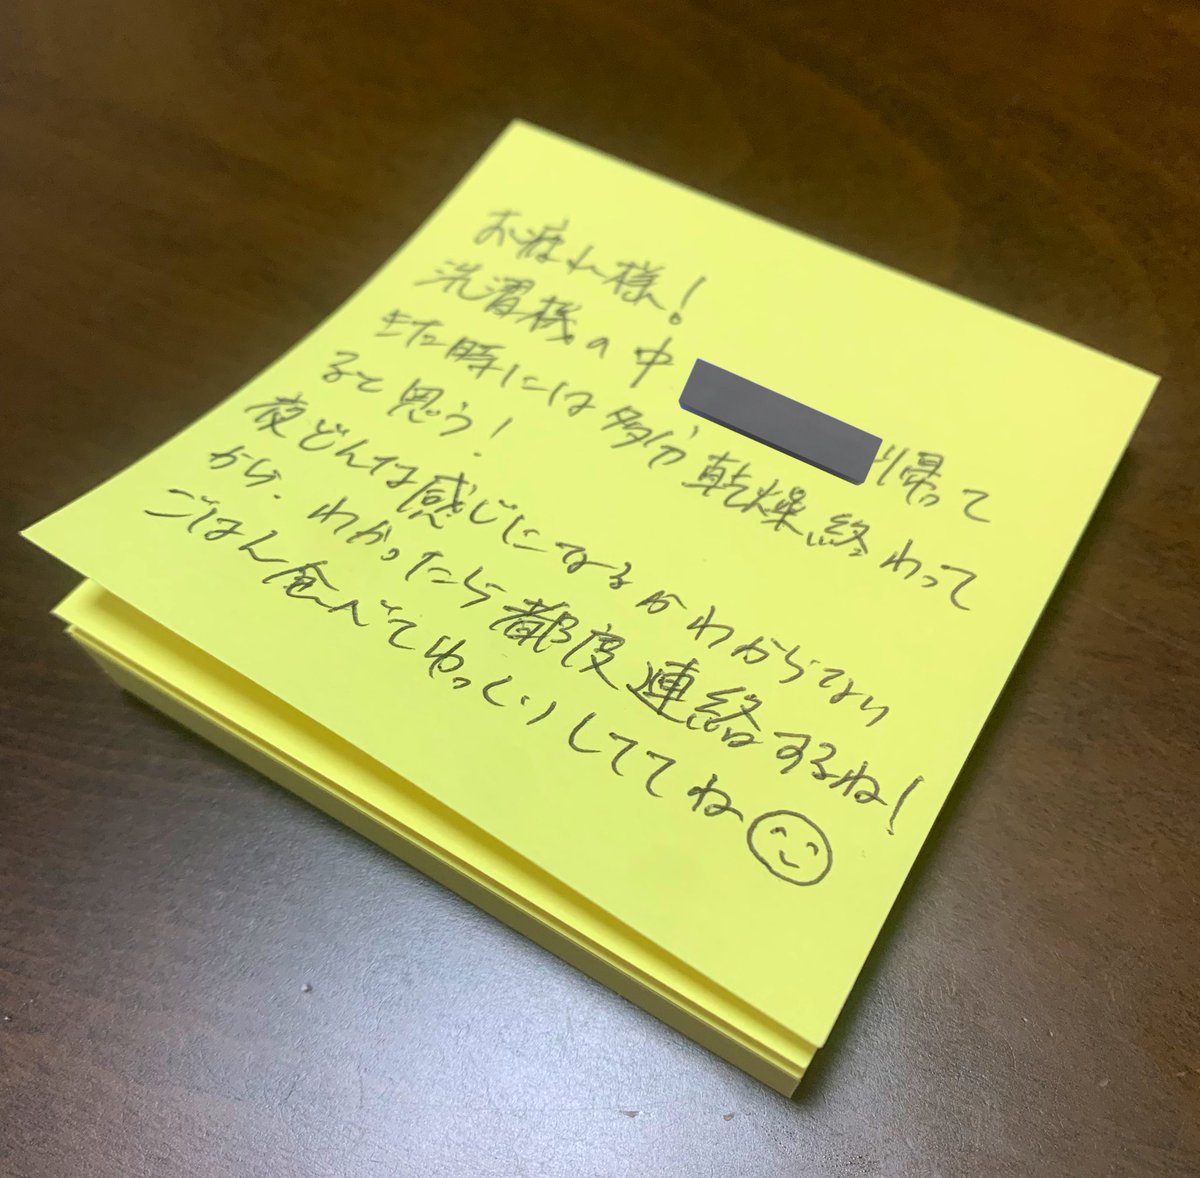 お疲れ様!
洗濯機の中 帰って
きた時には多分乾燥終わって
ると思う!
夜どんな感じになるかわからない
から、わかったら都度連絡するね!
ごはん食べてゆっくりしててね